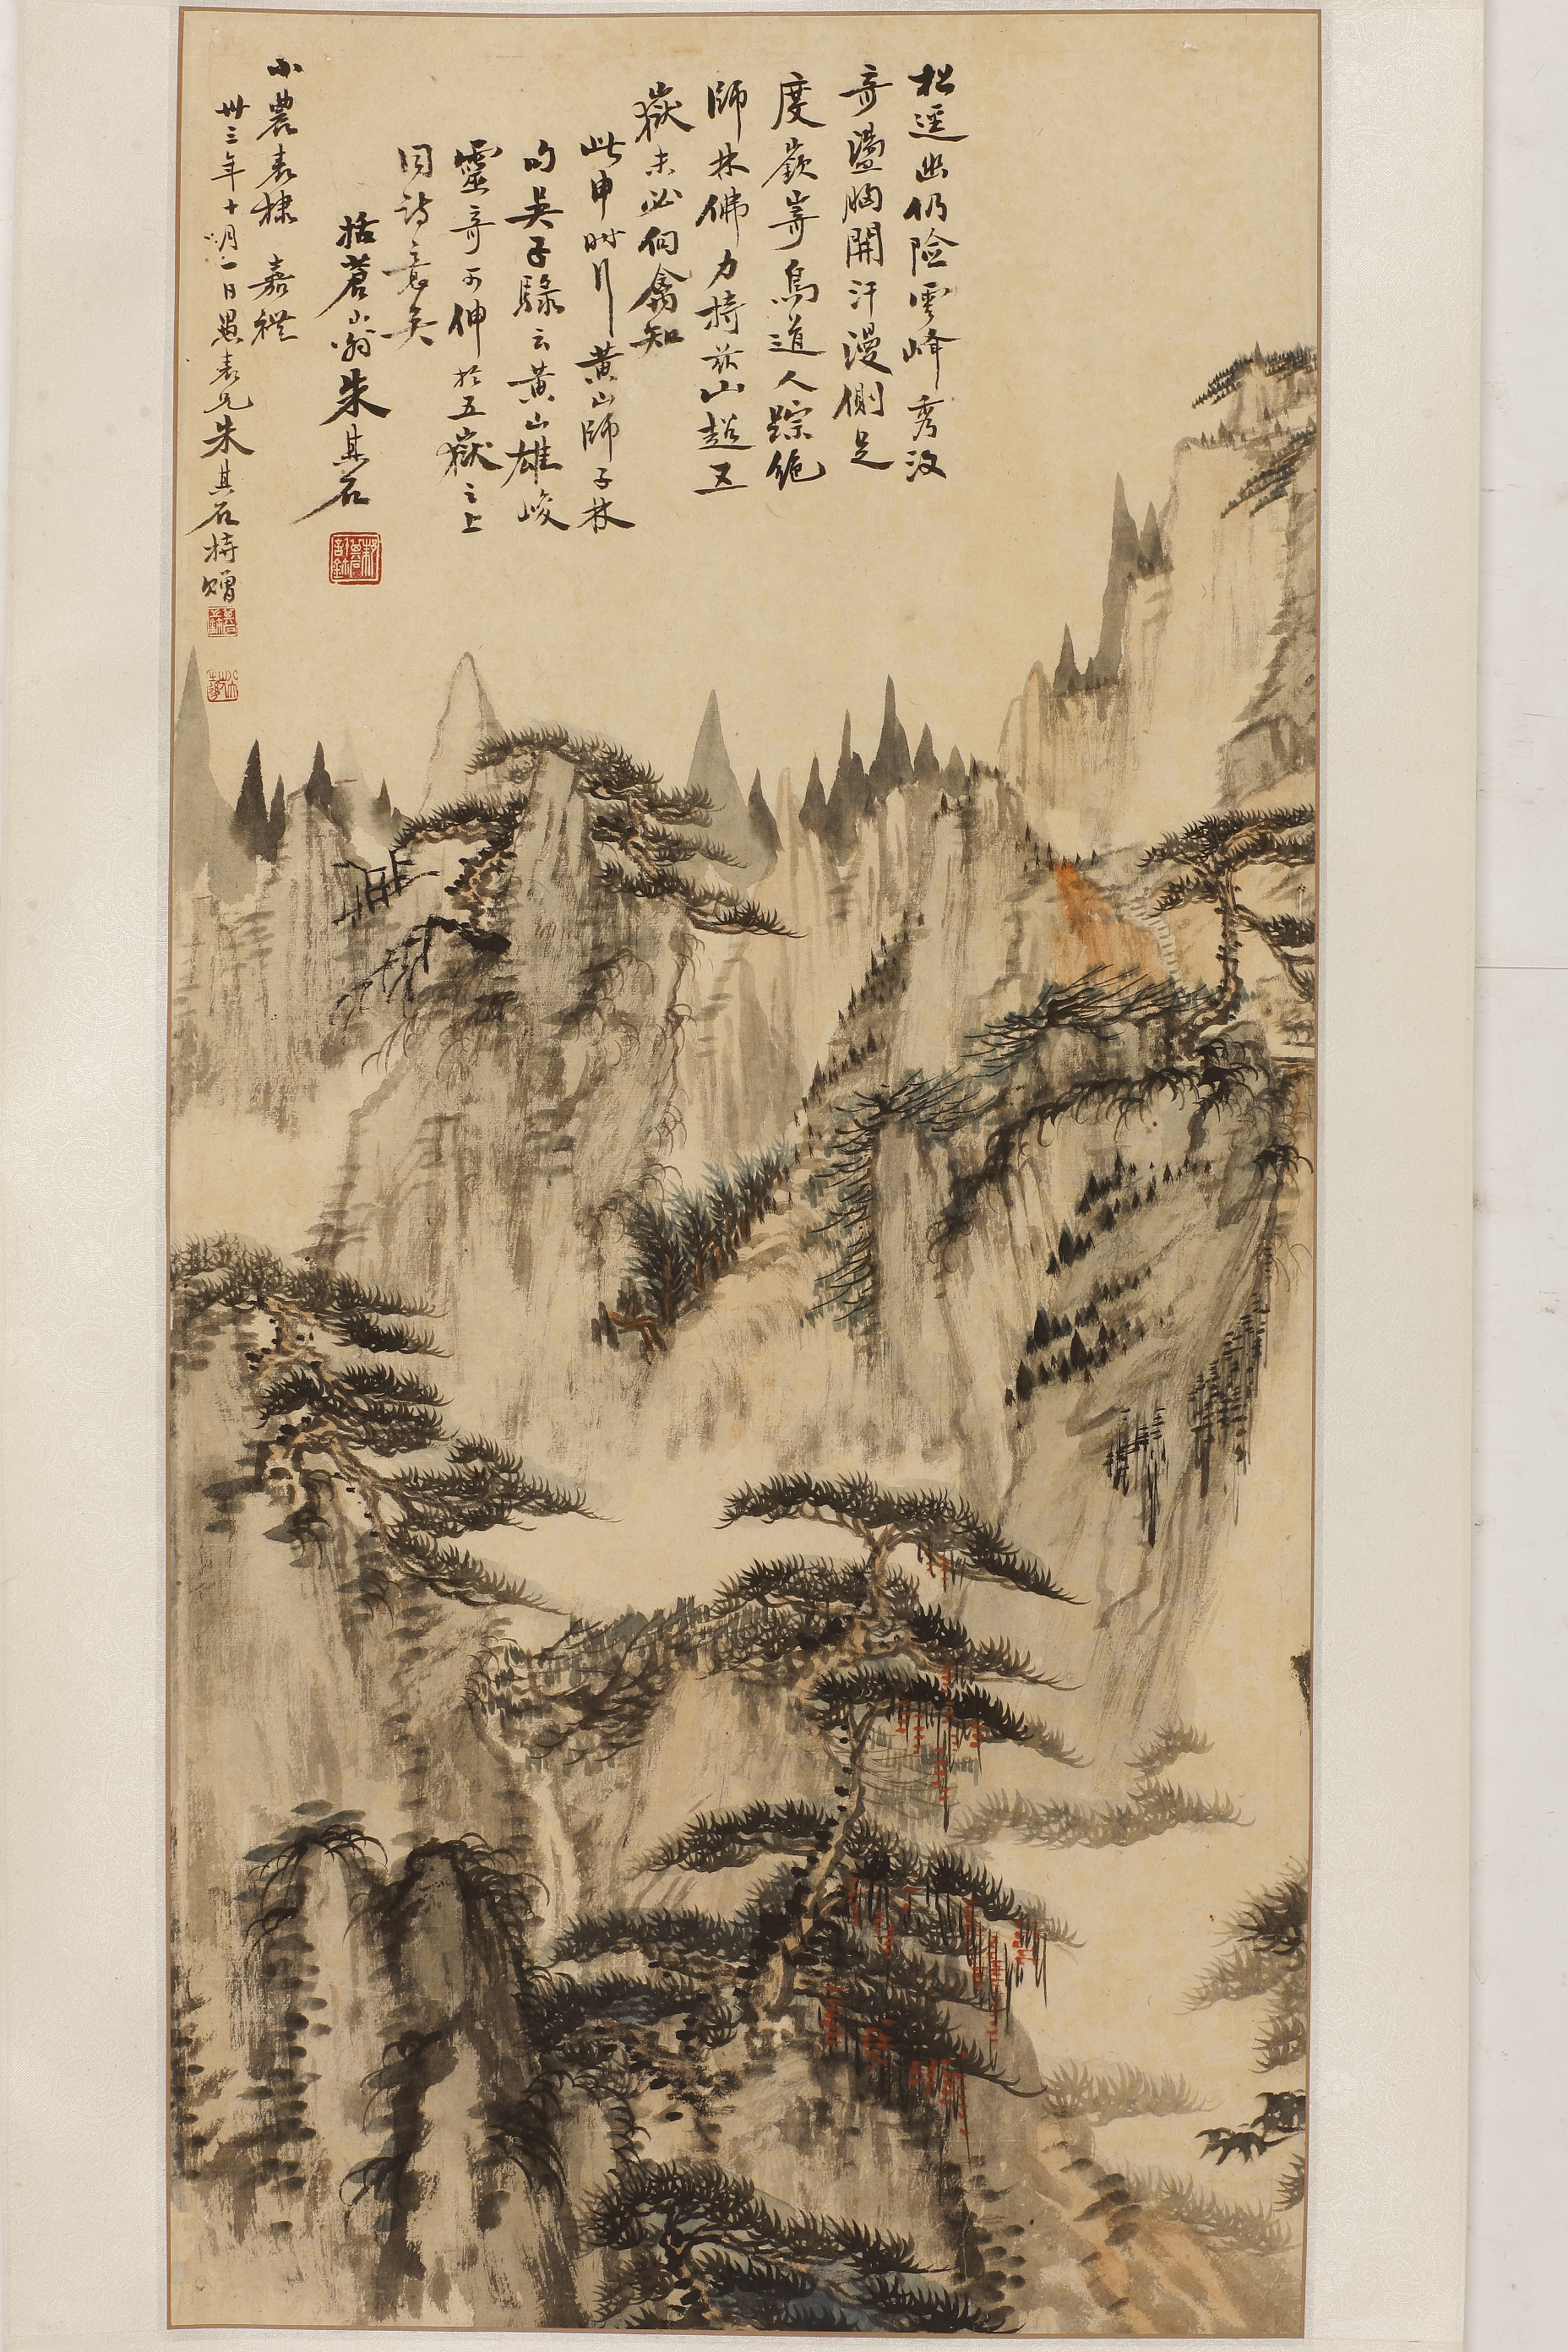 松逕幽仍險雲峰秀復
奇盪胸開汗漫側足
度嶔崎鳥道人踪絕
師林佛力持茲山超五
嶽未必向禽知
此申時行黃山師子林
句吳子騄云黃山雄峻
靈奇可伸於五嶽之上
同詩意矣
括蒼山翁朱其石
小農表棣嘉禮
卅三年十月一日愚表兄朱其石持贈